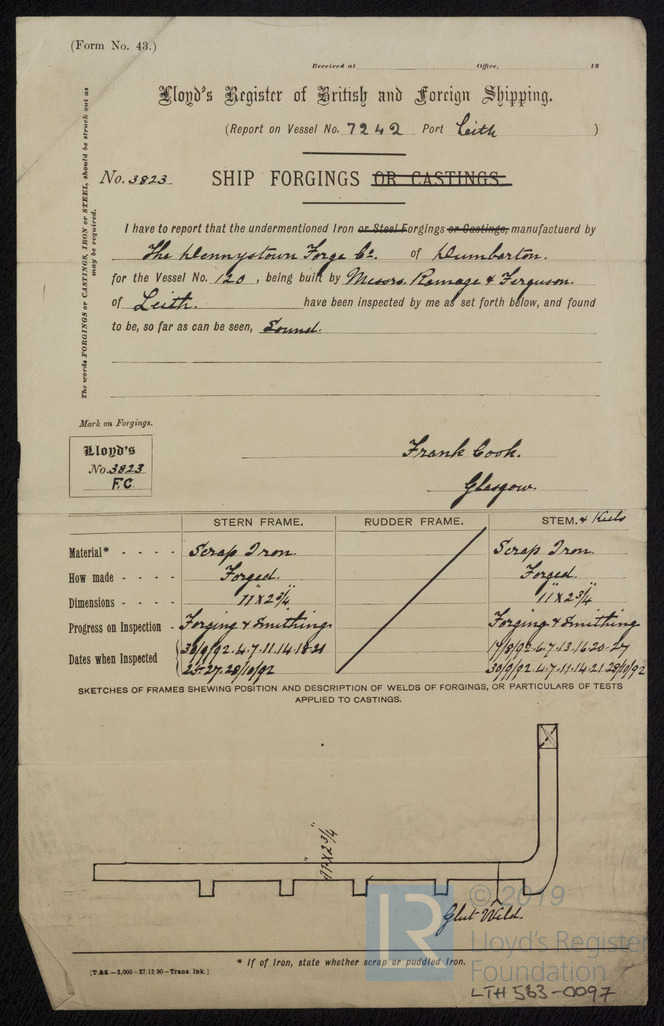 (Form No. 43.)
Received at Office, 18
Lloyd's Register of British and Foreign Shipping.
(Report on Vessel No. 7242 Port Leith )
No. 3823 SHIP FORGINGS OR CASTINGS.
The words FORGINGS or CASTINGS, IRON or STEEL, should be struck out as
may be required.
I have to report that the undermentioned Iron or Steel Forgings or Castings, manufactuerd by
The Dennystown Forge Co. of Dumbarton.
for the Vessel No. 120, being built by Messrs. Ramage & Ferguson
of Leith. have been inspected by me as set forth below, and found
to be, so far as can be seen, Sound.
Mark on Forgings.
Lloyd's
No. 3823
F.C.
Frank Cook.
Glasgow.
STERN FRAME. RUDDER FRAME. STEM. & Keels
Material* - - - - Scrap Iron. Scrap Iron.
How made - - - - Forged. Forged.
Dimensions - - - - 11" x 2 3/4" 11" x 2 3/4"
Progress on Inspection - Forging & Smithing Forging & Smithing
Dates when Inspected 30/9/92. 4. 7. 11. 14. 18. 21 17/8/92. 6. 7. 13. 16. 20. 27
25. 27. 28/10/92 30/9/92. 4. 7. 11. 14. 21. 28/10/92
SKETCHES OF FRAMES SHEWING POSITION AND DESCRIPTION OF WELDS OF FORGINGS, OR PARTICULARS OF TESTS
APPLIED TO CASTINGS.
11" x 2 3/4"
Glut Weld.
* If of Iron, state whether scrap or puddled Iron.
[T.&S.—2,000—27.12.90—Trans. Ink.]
LR
© 2019
Lloyd's Register
Foundation
LTH 563-0097